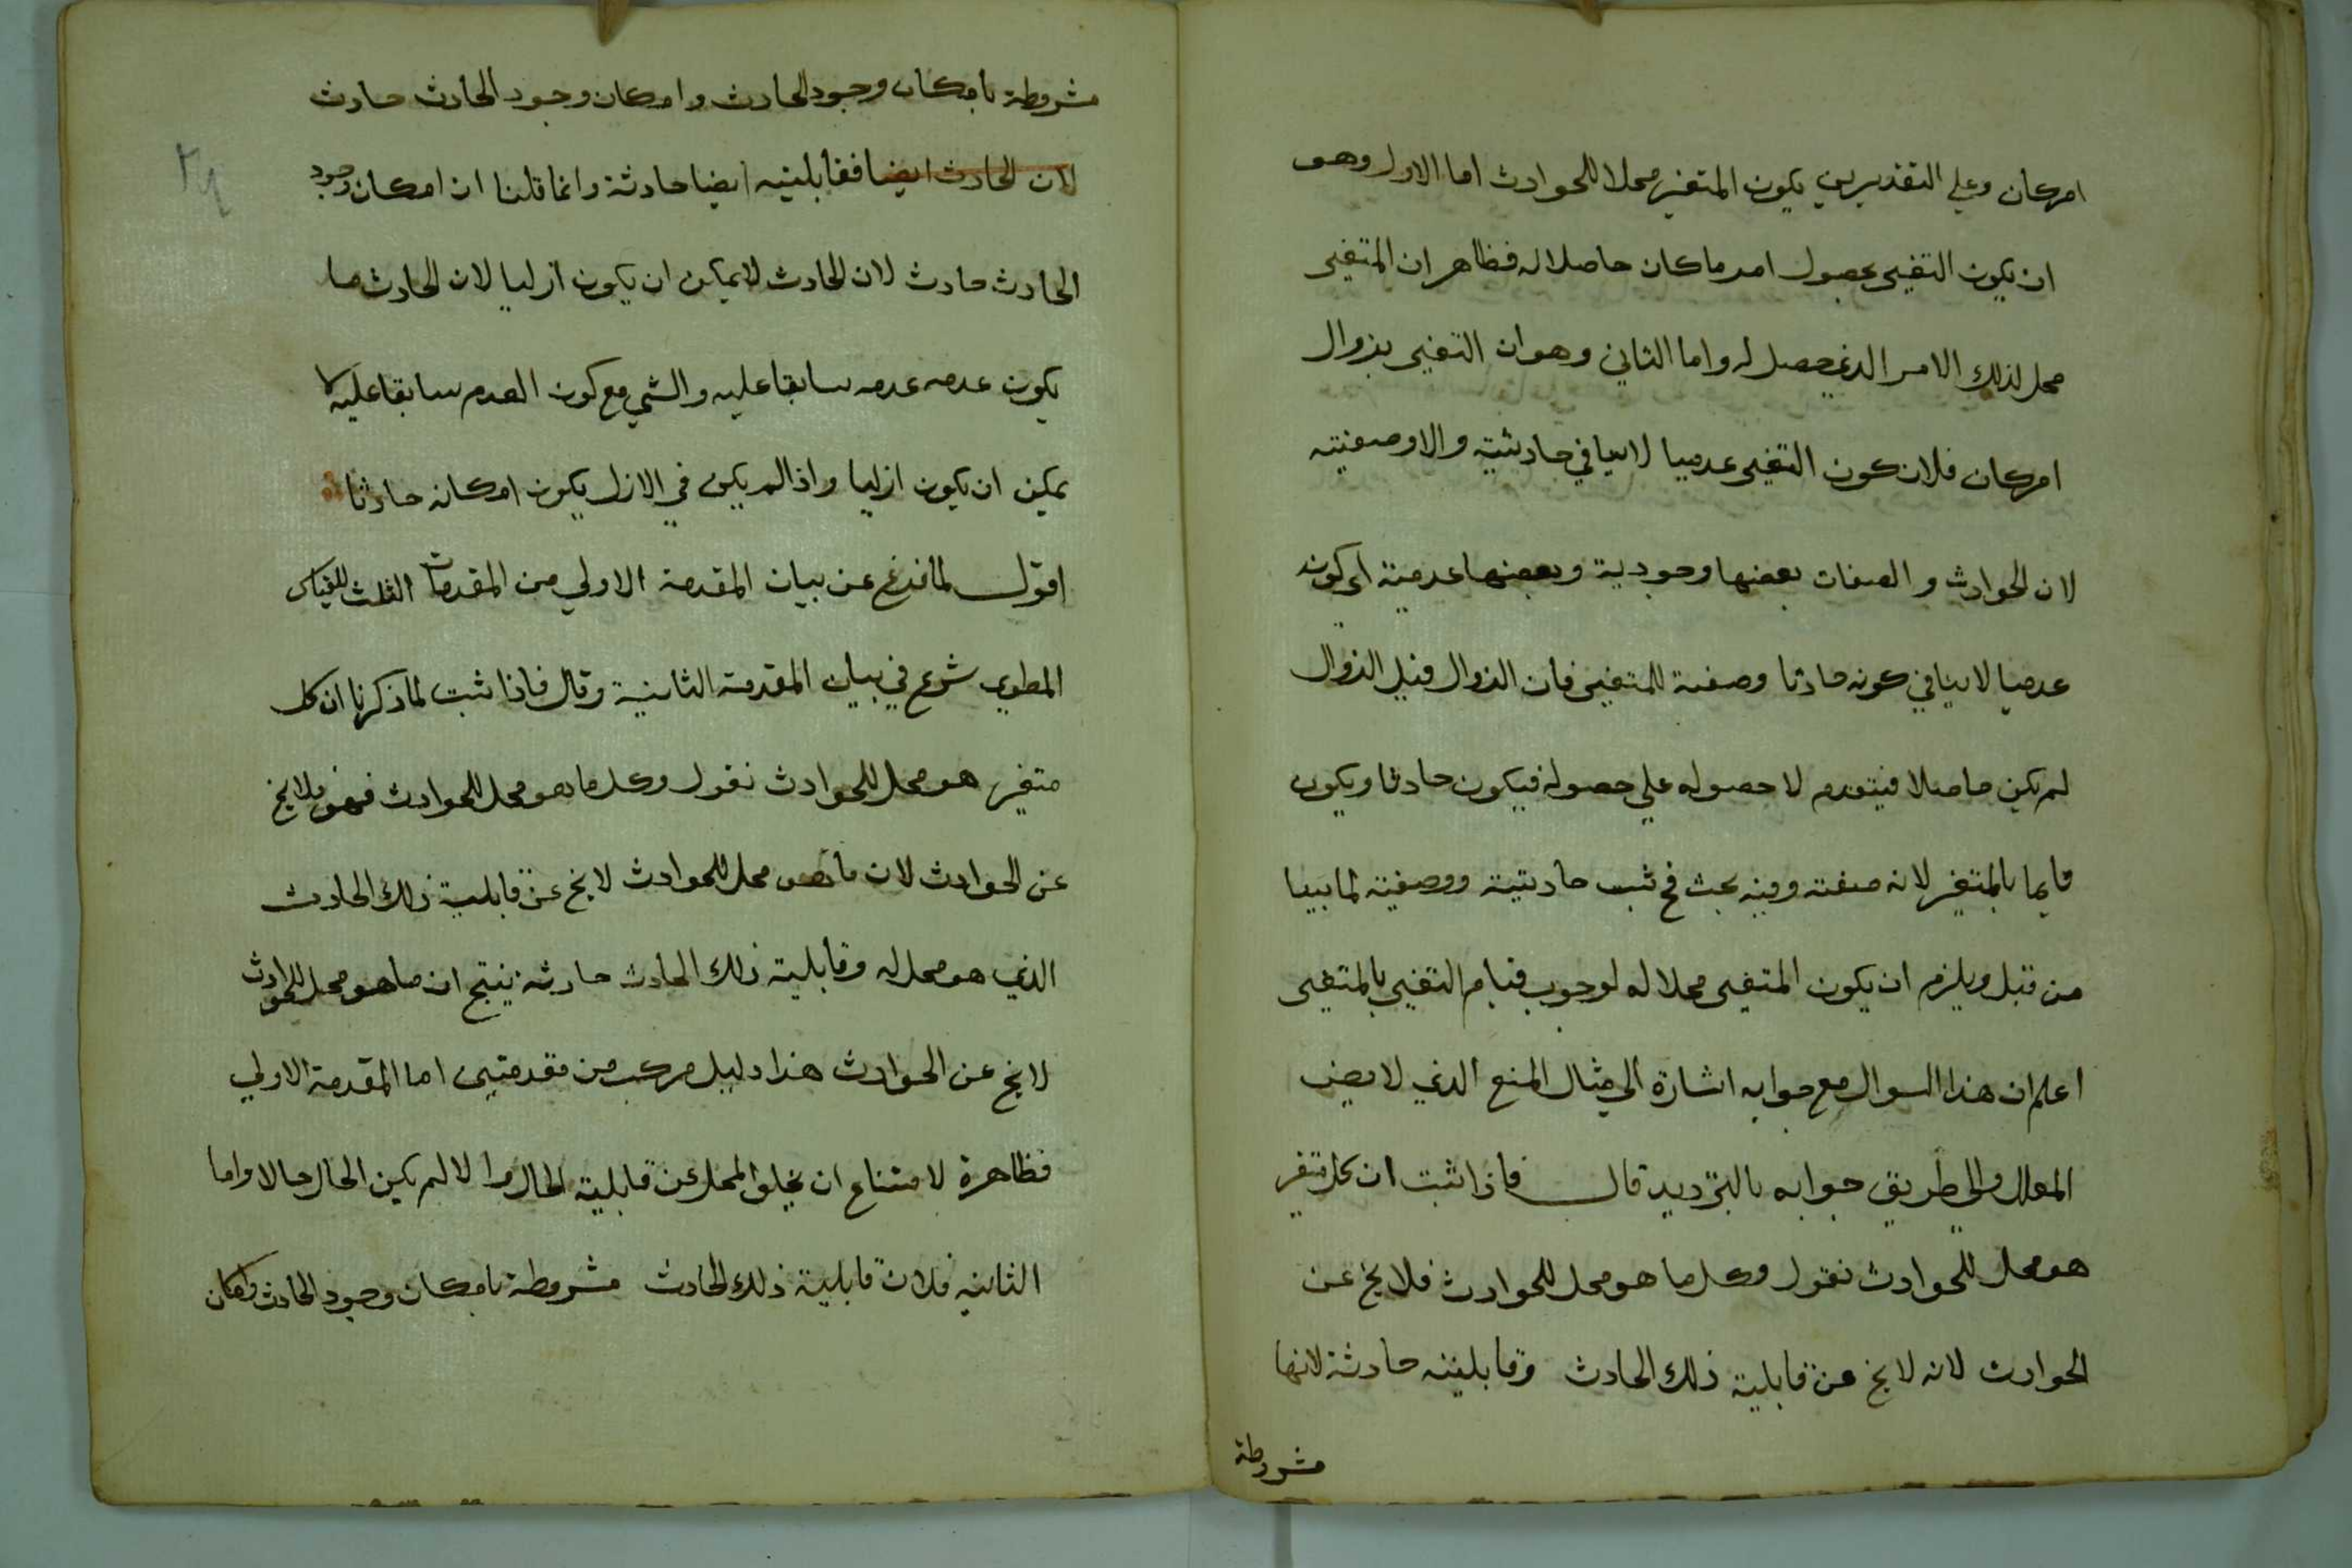 امر كان وعلي التقديرين يكون المتغير محلا للحوادث اما الاول وهو
ان يكون التغير بحصول امر ما كان حاصلا له فظاهر ان المتغير
محل لذلك الامر الذي حصل له واما الثاني وهو ان التغير بزوال
امر كان فلان كون التغير عدميا لا ينافي حادثيته والا وصفيته
لان الحوادث والصفات بعضها وجودية وبعضها عدمية اي كونه
عدميا لا ينافي كونه حادثا وصفة للمتغير فان الزوال قبل الزوال
لم يكن حاصلا فيتقدم لا حصوله علي حصوله فيكون حادثا ويكون
قايما بالمتغير لانه صفته وفيه بحث فح ثبت حادثيته ووصفيته لما بينا
من قبل ويلزم ان يكون المتغير محلا له لوجوب قيام التغير بالمتغير
اعلم ان هذا السوال مع جوابه اشارة الي مثال المنع الذي لا يضر
المعلل والي طريق جوابه بالترديد قال فاذا ثبت ان كل متغير
هو محل للحوادث نقول وكل ما هو محل للحوادث فلا يخ عن
الحوادث لانه لا يخ عن قابلية ذلك الحادث وقابليته حادثة لانها
مشروطة
مشروطة بامكان وجود الحادث وامكان وجود الحادث حادث
لان الحادث ايضا فقابليته ايضا حادثة وانما قلنا ان امكان وجود
الحادث حادث لان الحادث لا يمكن ان يكون ازليا لان الحادث ما
يكون عدمه عدمه سابقا عليه والشي مع كون العدم سابقا عليه لا
يمكن ان يكون ازليا واذا لم يكن في الازل يكون امكانه حادثا
اقول لما فرغ عن بيان المقدمة الاولي من المقدمات الثلث للقياس
المطوي شرع في بيان المقدمة الثانية وقال فاذا ثبت لما ذكرنا ان كل
متغير هو محل للحوادث نقول وكل ما هو محل للحوادث فهو فلا يخ
عن الحوادث لان ما هو محل للحوادث لا يخ عن قابلية ذلك الحادث
الذي هو محل له وقابلية ذلك الحادث حادثه ينتج ان ما هو محل للحوادث
لا يخ عن الحوادث هذا دليل مركب من مقدمتين اما المقدمة الاولي
فظاهرة لامتناع ان يخلو المحل عن قابلية الحال والا لم يكن الحال حالا واما
الثانيه فلان قابلية ذلك الحادث مشروطة بامكان وجود الحادث وامكان